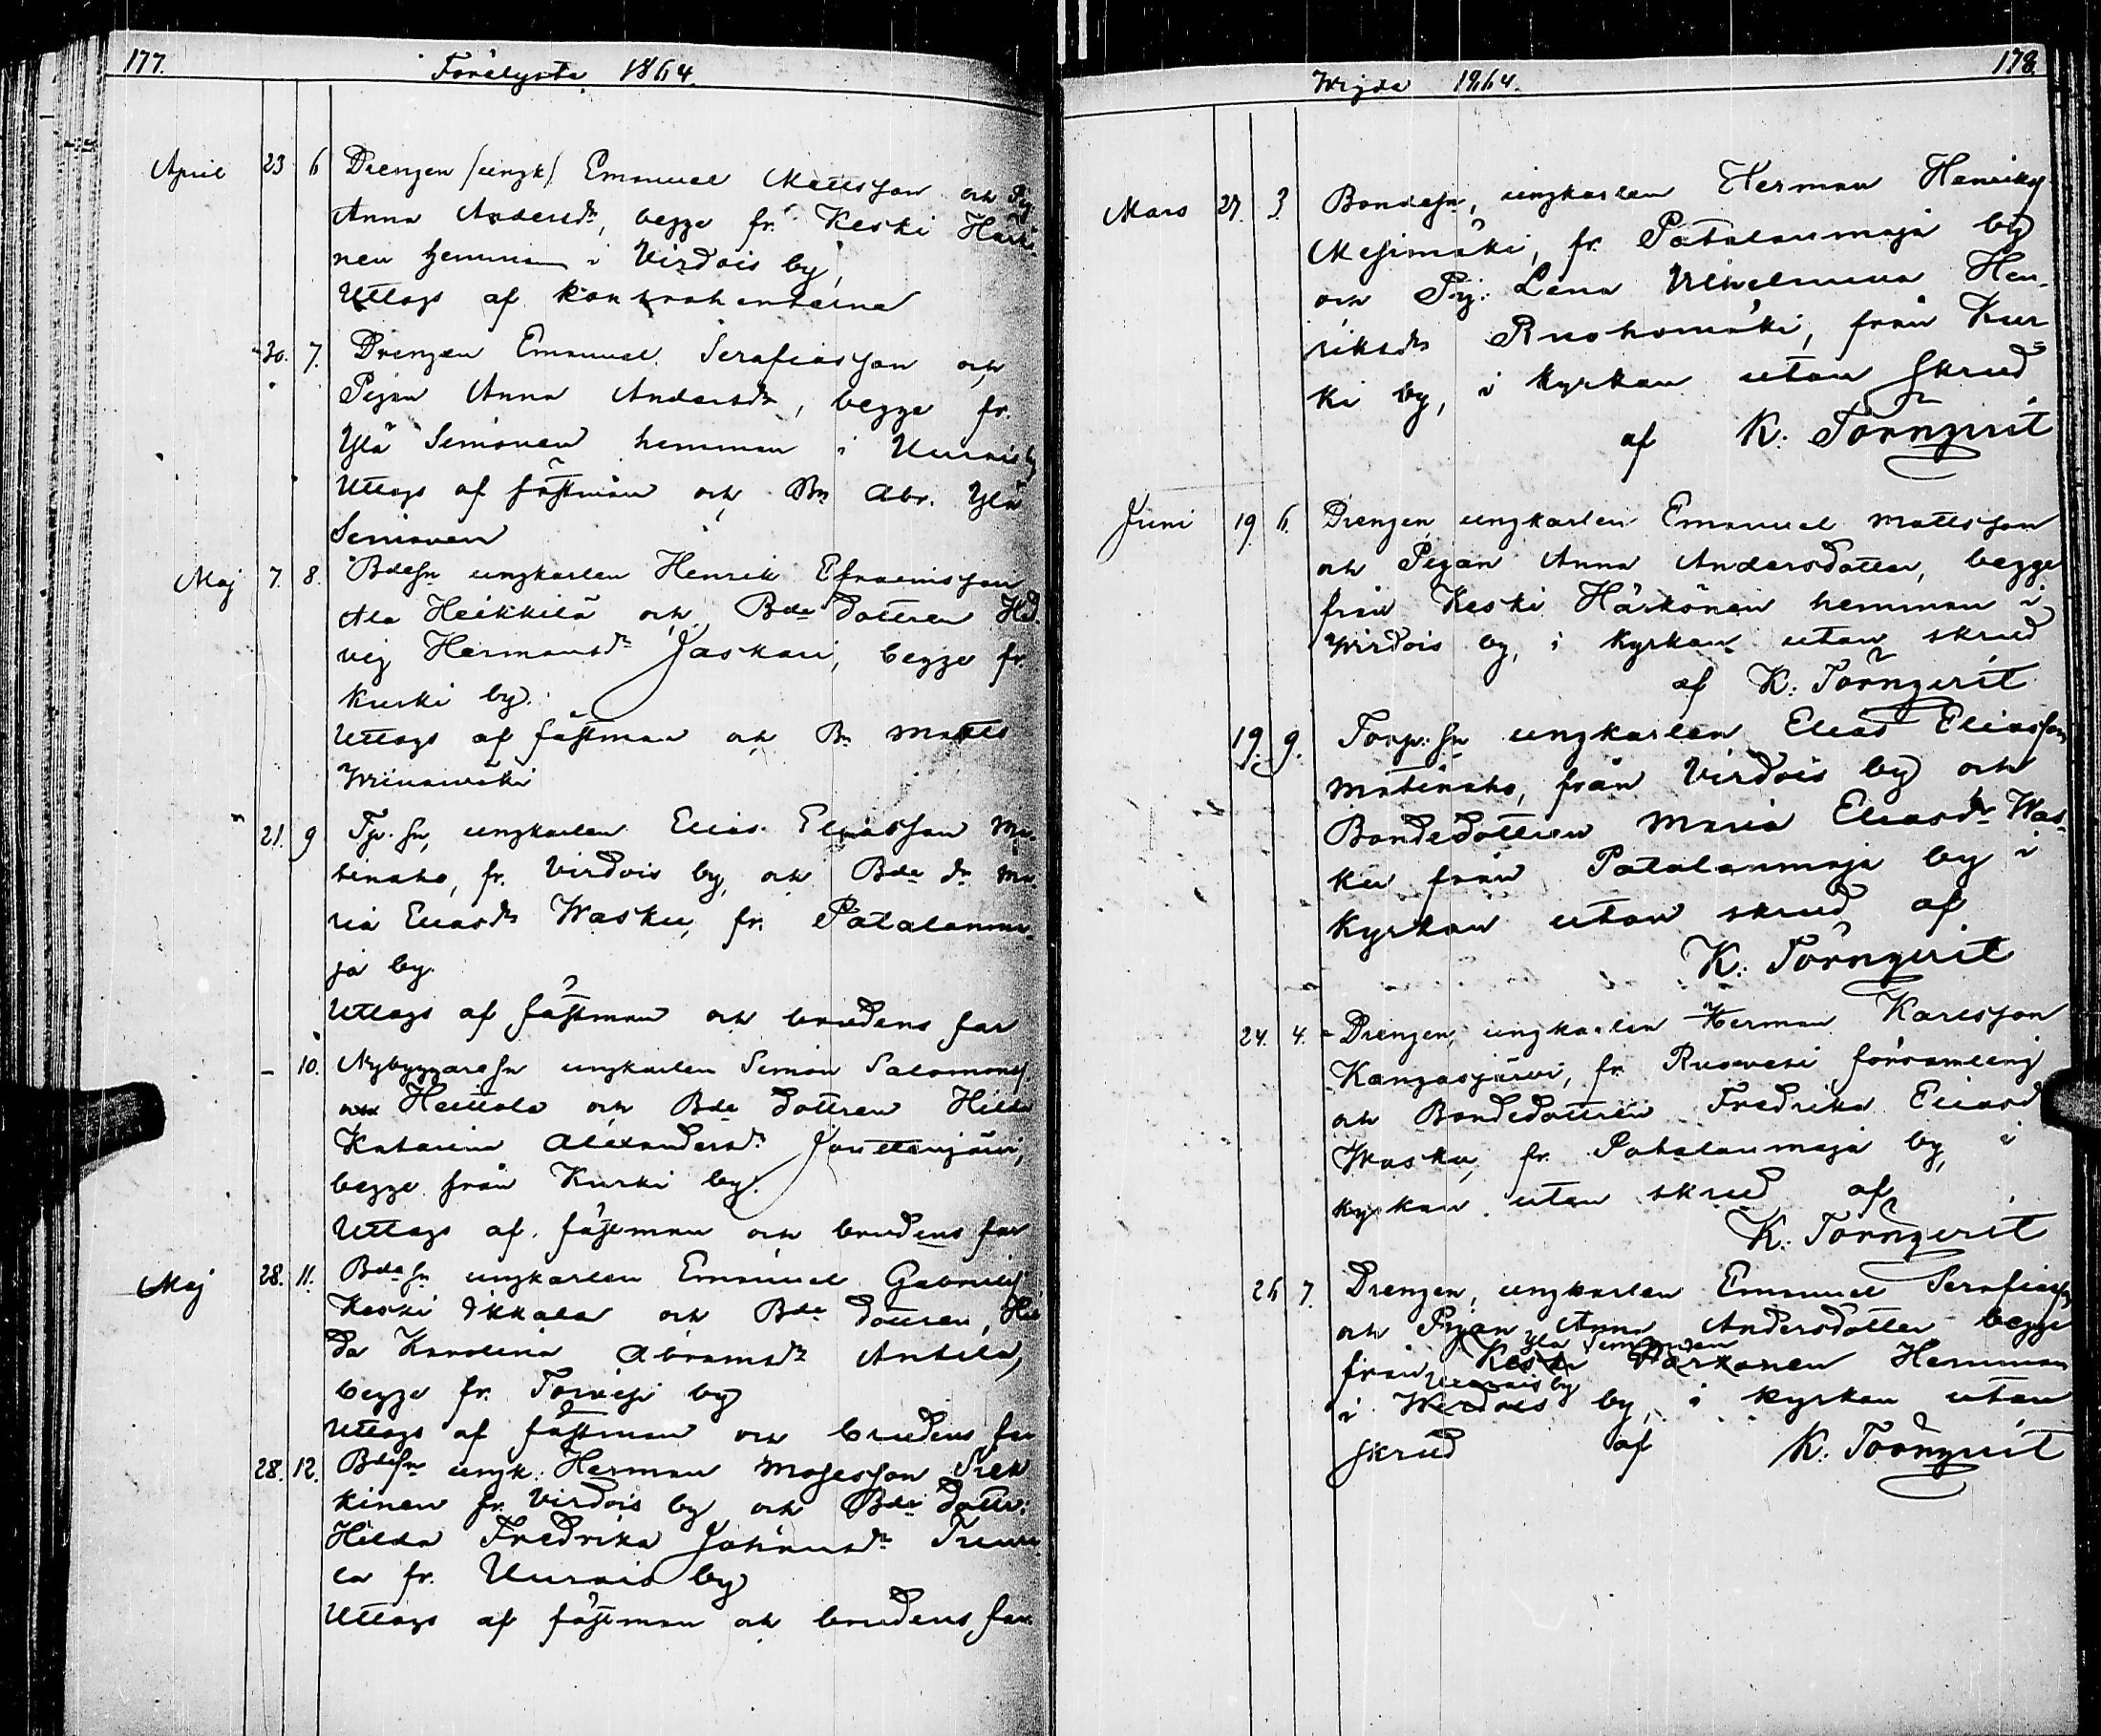 177.
Förelyste 1864.
April 23 6 Drengen /ungk/ Emanuel Mattsson och Pig
Anna Andersdr, begge fr. Keski Härkö-
nen hemman i Virdois by,
Uttogs af kontrahenterna
30. 7. Drengen Emanuel Serafiasson och
Pigan Anna Andersdr, begge fr.
Ylä Simonen hemman i Uurais by
Uttogs af fästman och Bn Abr. Ylä
Simonen
Maj 7. 8. Bdesn ungkarlen Henrik Efraimsson
Ala Heikkilä och Bde dottren Hed-
vig Hermansdr Jaskari, begge fr.
Kurki by.
Uttogs af fästman och Bn Matts
21. 9 Tp. sn, ungkarlen Elias Eliasson Ma-
tinaho, fr. Virdois by, och Bde dr Ma-
ria Eliasdr Wasku, fr. Patalanma-
ja by.
Uttogs af fästman och brudens far
– 10. Nybyggaresn ungkarlen Simon Salomonss.
Heittola och Bde dottren Hilda
Katarina Alexandersdr Jouttenjärvi,
begge från Kurki by.
Uttogs af fästman och brudens far
Maj 28. 11. Bde sn ungkarlen Emanuel Gabrielss
Keski Ikkala och Bde dottren, Hil
da Karolina Abramsdr Antila,
begge fr. Toivesi by
Uttogs af fästman och brudens far
28. 12. Bdesn ungk. Herman Mosesson
kinen fr. Virdois by och Bde dottr:
Hilda Fredrika Johansdr
la fr. Uurais by
Uttogs af fästman och brudens far
178.
Wigda 1864.
Mars 27. 3. Bondesn, ungkarlen Herman Henriks
Mesimäki, fr. Patalanmaja by
och Pig. Lena Vilhelmina Hen-
riksdr Ruohomäki, från Kur-
ki by, i kyrkan utan skrud
af K. Törnqvist
Juni 19. 6. Drengen ungkarlen Emanuel Mattsson
och Pigan Anna Andersdotter, begge
från Keski Härkönen hemman i
Wirdois by, i kyrkan utan skrud
af K. Törnqvist
19. 9. Torp. sn ungkarlen Elias Eliasson
Matinaho, från Virdois by och
Bondedottren Maria Eliasdr Was-
ku från Patalanmaja by i
kyrkan utan skrud af
K. Törnqvist
24. 4. Drengen, ungkarlen Herman Karlsson
Kangasjärvi, fr. Ruovesi församling
och Bondedottren Fredrika Eliasd
Wasku, fr. Patalanmaja by, i
kyrkan utan skrud af
K. Törnqvist
26 7. Drengen, ungkarlen Emanuel Serafiasson
och Pigan Anna Andersdotter begge
Ylä Simonen
från Keski Härkönen Hemman
Uurais by
i Wirdois by, i kyrkan utan
skrud af K. Törnqvist